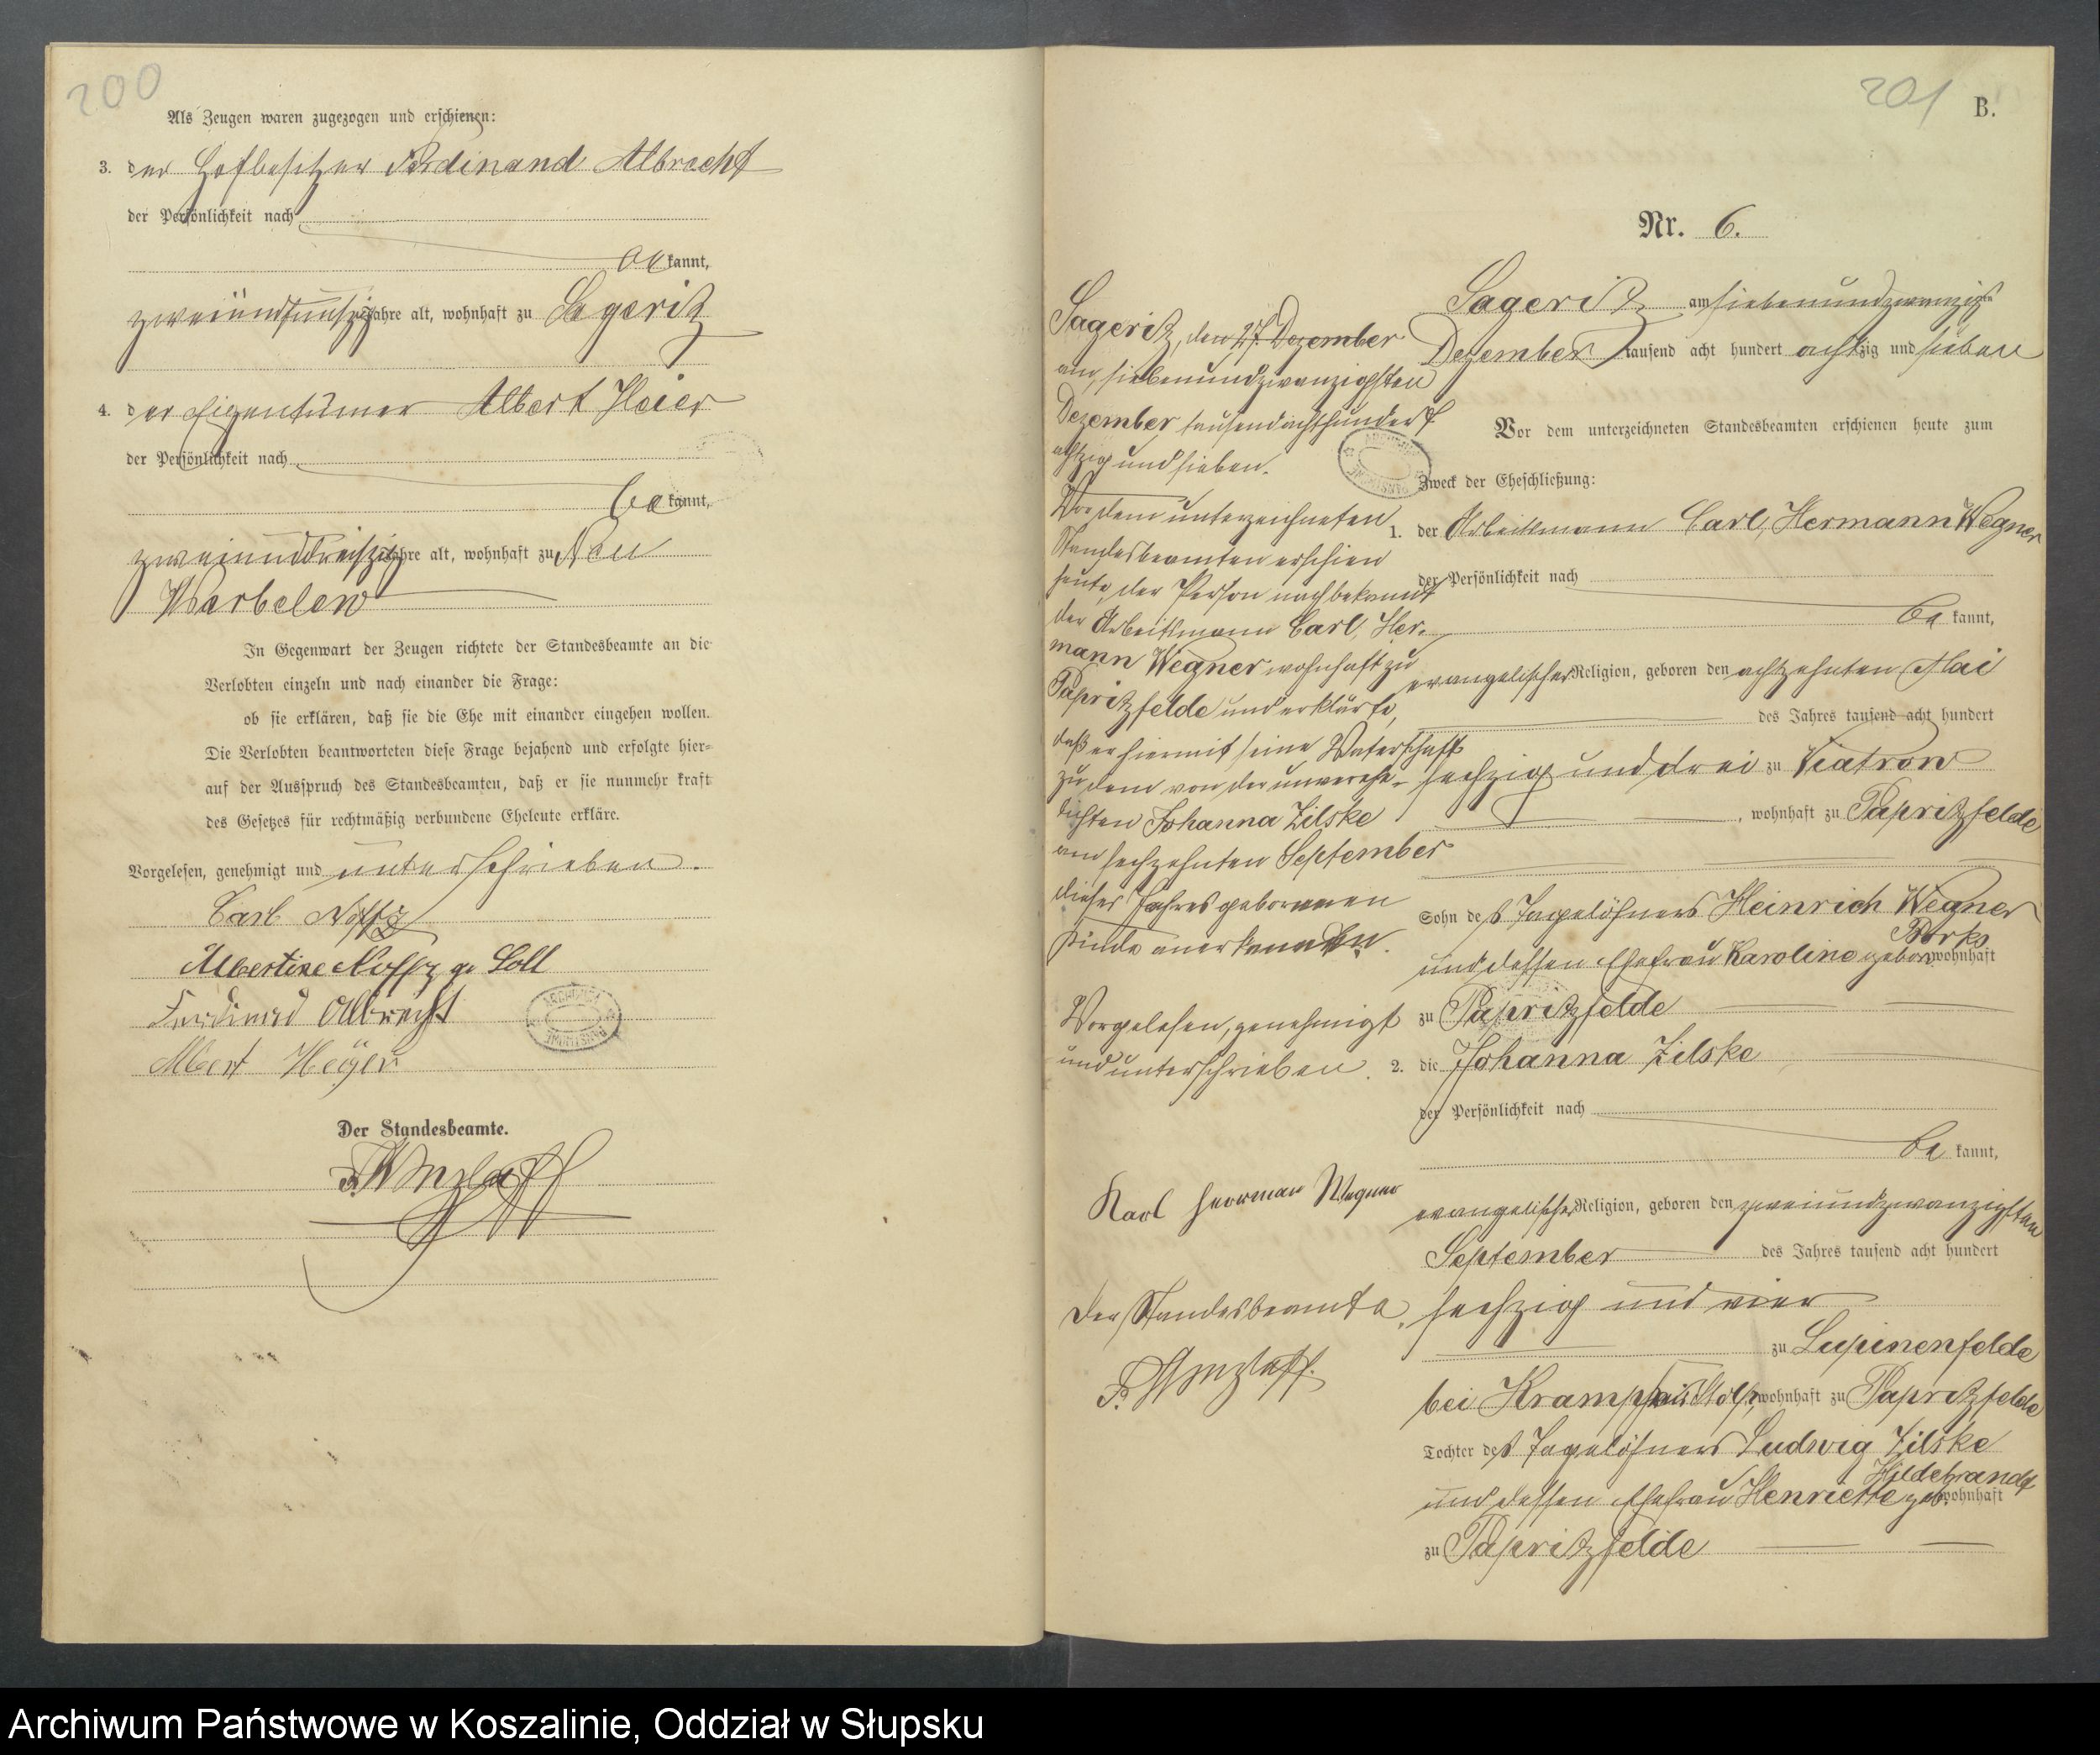 200
Als Zeugen waren zugezogen und erschienen:
3. der Hofbesitzer Ferdinand Albrecht
der Persönlichkeit nach
bekannt,
zweiundfunfzig Jahre alt, wohnhaft zu Sageritz
4. der Eigentümer Albert Heier
der Persönlichkeit nach
bekannt,
zweiunddreißig Jahre alt, wohnhaft zu Neu
Warbelow
In Gegenwart der Zeugen richtete der Standesbeamte an die
Verlobten einzeln und nach einander die Frage:
ob sie erklären, daß sie die Ehe mit einander eingehen wollen.
Die Verlobten beantworteten diese Frage bejahend und erfolgte hier-
auf der Ausspruch des Standesbeamten, daß er sie nunmehr kraft
des Gesetzes für rechtmäßig verbundene Eheleute erkläre.
Vorgelesen, genehmigt und unterschrieben.
Carl Noffz
Albertine Noffz ge Soll
Ferdinand Albrecht
Albert Heyer
Der Standesbeamte.
201
B.
Nr. 6.
Sageritz, den 27. Dezember
am siebenundzwanzigsten
Dezember tausendachthundert
achtzig und sieben.
Vor dem unterzeichneten
Standesbeamten erschien
heute, der Person nach bekannt
der Arbeitsmann Carl, Her-
mann Wegner wohnhaft zu
Papritzfelde und erklärte,
daß er hiermit seine Vaterschaft
zu dem von der unverehe-
lichten Johanna Zilske
am sechzehnten September
dieses Jahres geborenen
Kinde anerkenne.
Vorgelesen, genehmigt
und unterschrieben.
Karl Herrman Wegner
Der Standesbeamte.
Sageritz am siebenundzwanzigsten
Dezember tausend acht hundert achtzig und sieben
Vor dem unterzeichneten Standesbeamten erschienen heute zum
Zweck der Eheschließung:
1. der Arbeitsmann Carl, Hermann Wegner
der Persönlichkeit nach
bekannt,
evangelischer Religion, geboren den achtzehnten Mai
des Jahres tausend acht hundert
sechzig und drei zu Viatrow
, wohnhaft zu Papritzfelde
Sohn des Tagelöhners Heinrich Wegner
und dessen Ehefrau Karoline geborn Borks wohnhaft
zu Papritzfelde
2. die Johanna Zilske
der Persönlichkeit nach
bekannt,
evangelischer Religion, geboren den zweiundzwanzigsten
September des Jahres tausend acht hundert
sechzig und vier
zu Lupinenfelde
bei Krampe Stolp, wohnhaft zu Papritzfelde
Tochter des Tagelöhners Ludwig Zilske
und dessen Ehefrau Henriette geb. Hildebrandt wohnhaft
zu Papritzfelde
Archiwum Państwowe w Koszalinie, Oddział w Słupsku